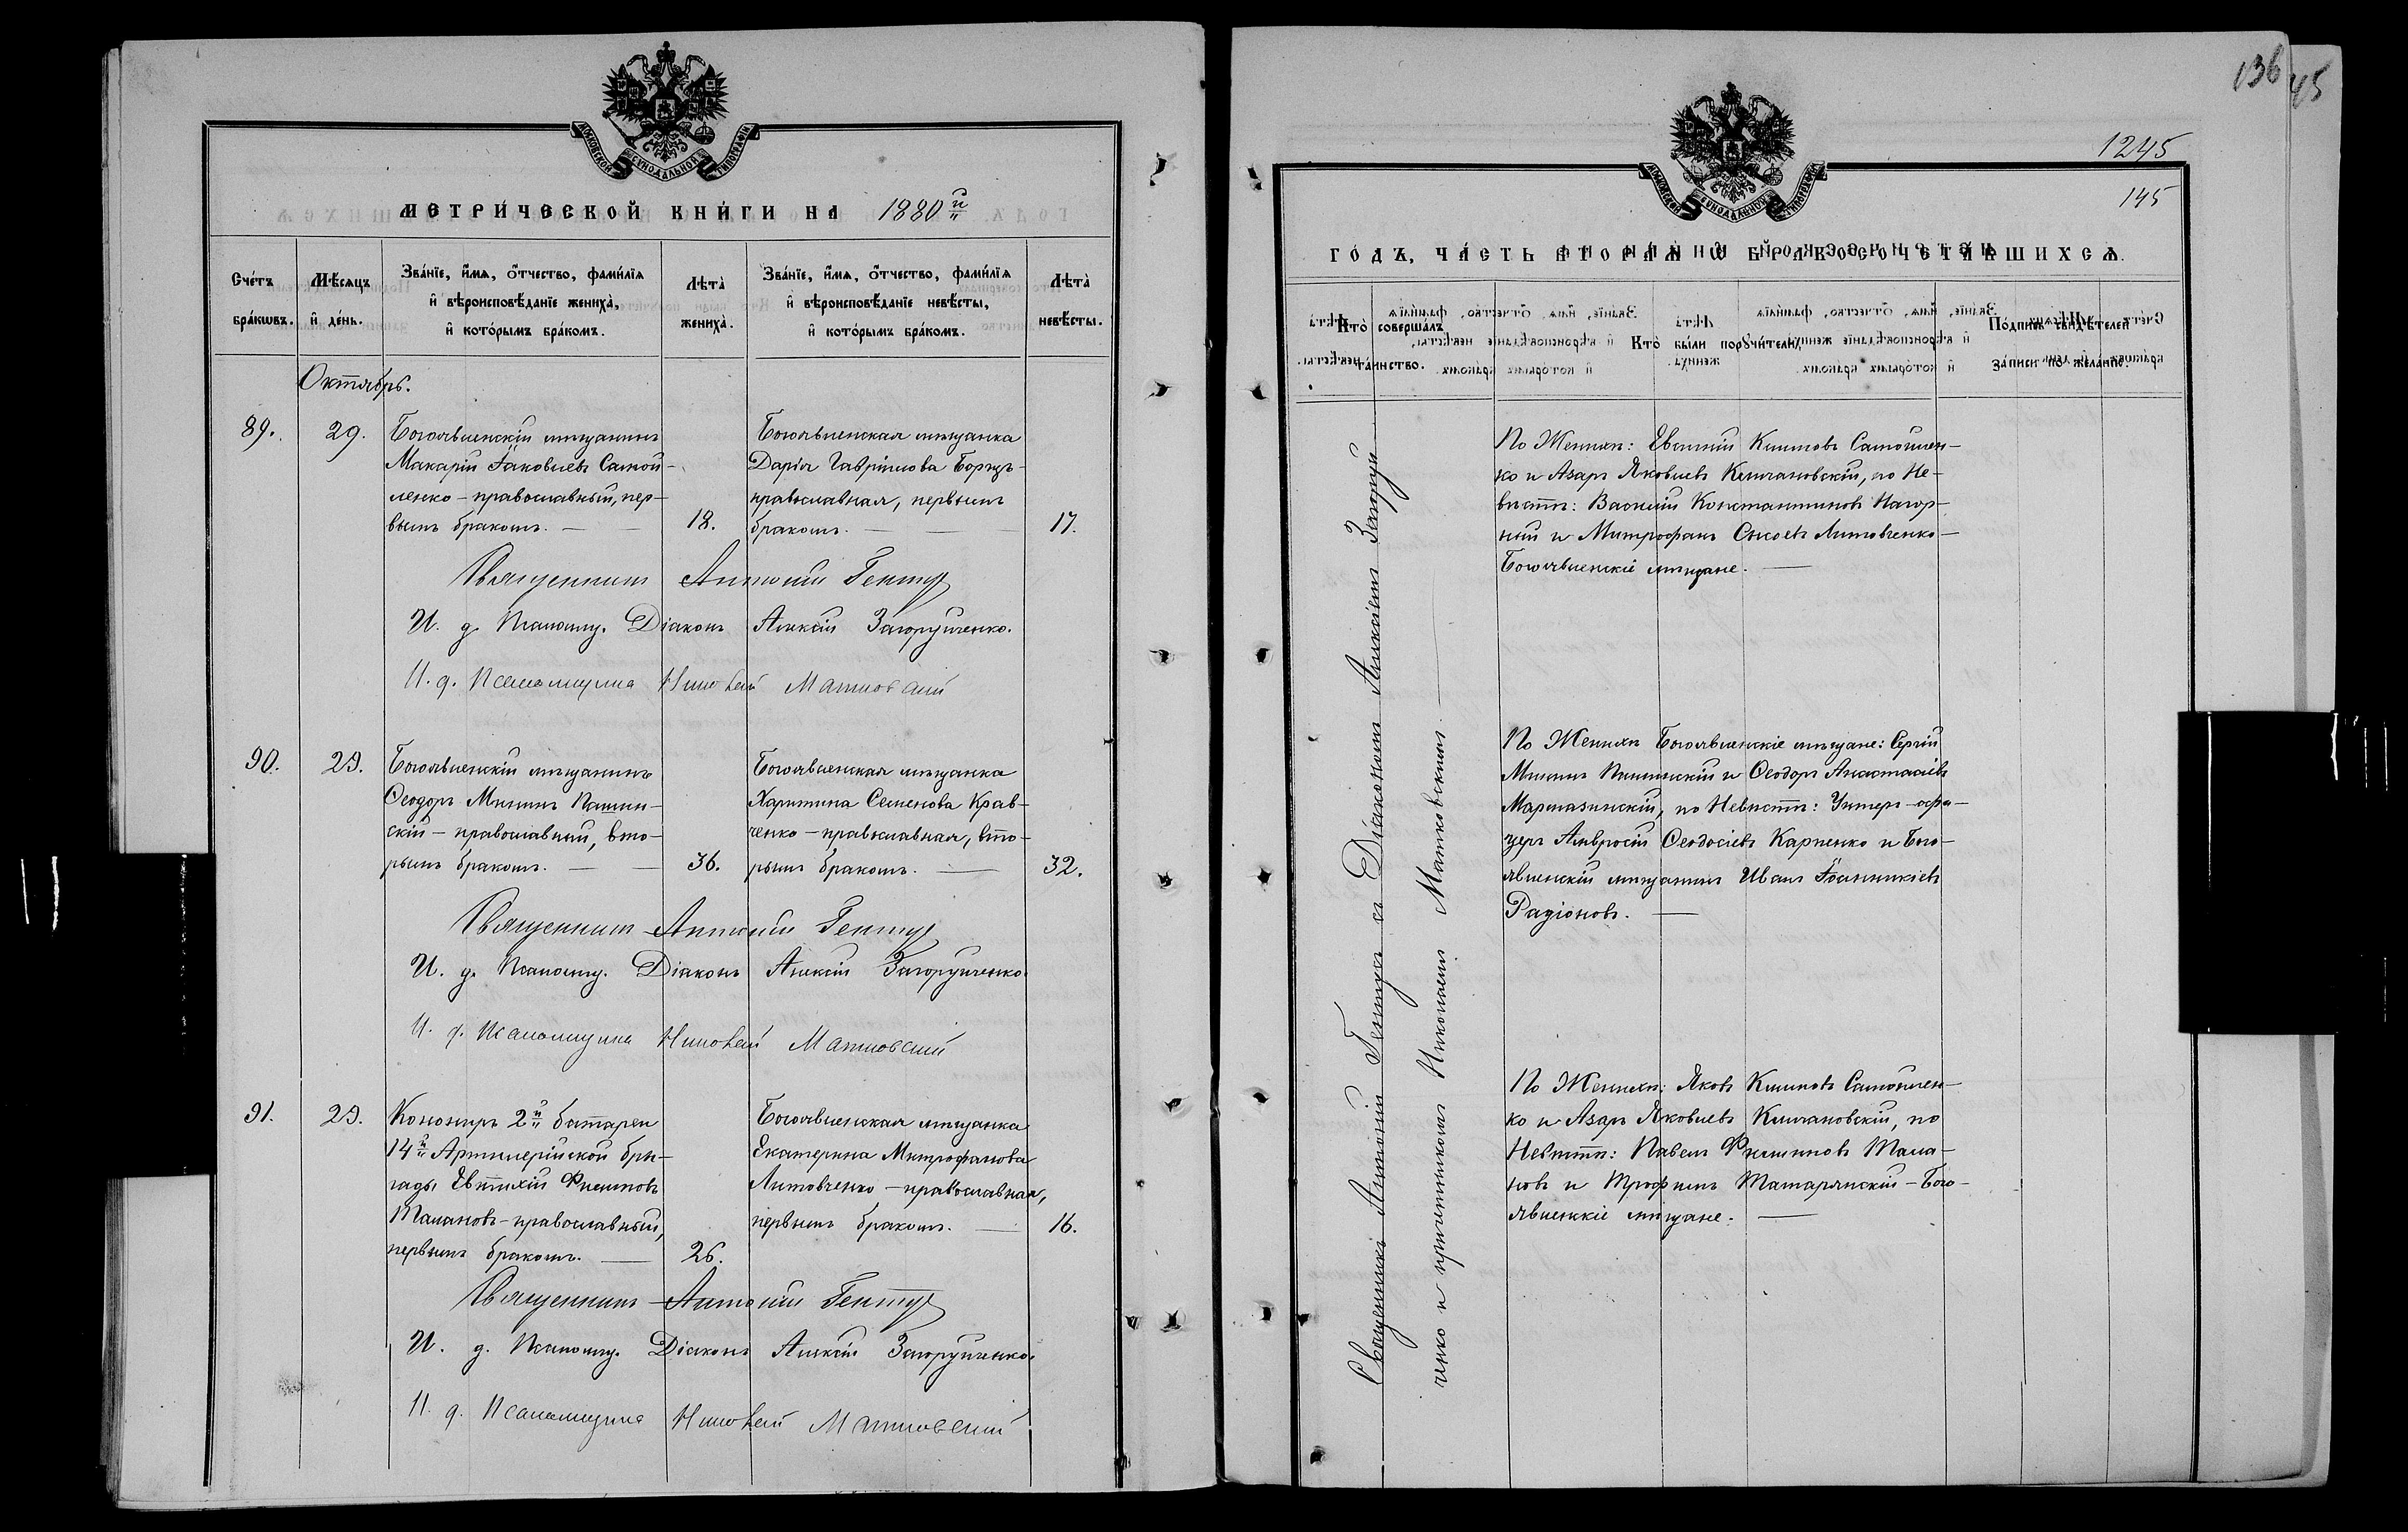 МОСКОВСКОЙ СѴНОДАЛЬНОЙ ТИПОГРАФІИ
МЕТРИ́ЧЕСКОЙ КНИ́ГИ НА 1880й
Сче́тъ бра́кωвъ.
Мѣ́сяцъ и҆ де́нь.
Зва́нїе, и҆́мѧ, ѻ҆́тчество, фами́лїѧ
и҆ вѣроисповѣ́данїе жениха̀,
и҆ кото́рымъ бра́комъ.
Лѣ́та̀ жениха̀.
Зва́нїе, и҆́мѧ, ѻ҆́тчество, фами́лїѧ
и҆ вѣроисповѣ́данїе невѣ́сты,
и҆ кото́рымъ бра́комъ.
Лѣ́та̀ невѣ́сты.
Октябрь.
89.
29.
Богоявленскій мѣщанинъ
Макарій Іаковлевъ Самой-
ленко - православный, пер-
вымъ бракомъ. —
18.
Богоявленская мѣщанка
Дарія Гавріилова Борщъ -
православная, первымъ
бракомъ. —
17.
Священникъ Антоній Гентуз
И. д. Псаломщ. Діаконъ Алексій Загоруйченко.
И. д. Псаломщика Николай Матковскій
90.
29.
Богоявленскій мѣщанинъ
Ѳеодоръ Мининъ Пашин-
скій - православный, вто-
рымъ бракомъ. —
36.
Богоявленская мѣщанка
Харитина Семенова Крав-
ченко - православная, вто-
рымъ бракомъ. —
32.
Священникъ Антоній Гентуз
И. д. Псаломщ. Діаконъ Алексій Загоруйченко.
И. д. Псаломщика Николай Матковскій
91.
29.
Канониръ 2й батареи
14й Артиллерійской бри-
гады Евтихій Филиповъ
Талановъ - православный,
первымъ бракомъ. —
26.
Богоявленская мѣщанка
Екатерина Митрофанова
Литовченко - православная,
первымъ бракомъ. —
16.
Священникъ Антоній Гентуз
И. д. Псаломщ. Діаконъ Алексій Загоруйченко.
И. д. Псаломщика Николай Матковскій
136
45
1245
145
МОСКОВСКОЙ СѴНОДАЛЬНОЙ ТИПОГРАФІИ
ГО́ДЪ, ЧА́СТЬ ВТОРА́Ѧ Ѡ БРАКОСОЧЕТА́ВШИХСѦ.
Кто̀ соверша́лъ та́инство.
Кто̀ бы́ли порꙋчи́тели.
По́дписи свидѣ́телей за́писи по жела́нїю.
Священникъ Антоній Гентуз съ Діакономъ Алексіемъ Загоруй-
ченко и причетникомъ Николаемъ Матковскимъ. —
По Женихѣ: Евтихій Климовъ Самойлен-
ко и Азаръ Яковлевъ Климановскій, по Не-
вѣстѣ: Василій Константиновъ Нагор-
ный и Митрофанъ Литовченко -
Богоявленскіе мѣщане. —
По Женихѣ Богоявленскіе мѣщане: Сергій
Мининъ Пашинскій и Ѳеодоръ Анастасіевъ
Мармазинскій, по Невѣстѣ: Унтеръ-офи-
церъ Амвросій Ѳеодосіевъ Карпенко и Бого-
явленскій мѣщанинъ Иванъ Іоанникіевъ
Радіоновъ. —
По Женихѣ: Яковъ Климовъ Самойлен-
ко и Азаръ Яковлевъ Климановскій, по
Невѣстѣ: Павелъ Филиповъ Тала-
новъ и Трофимъ Татарянскій - Бого-
явленскіе мѣщане. —